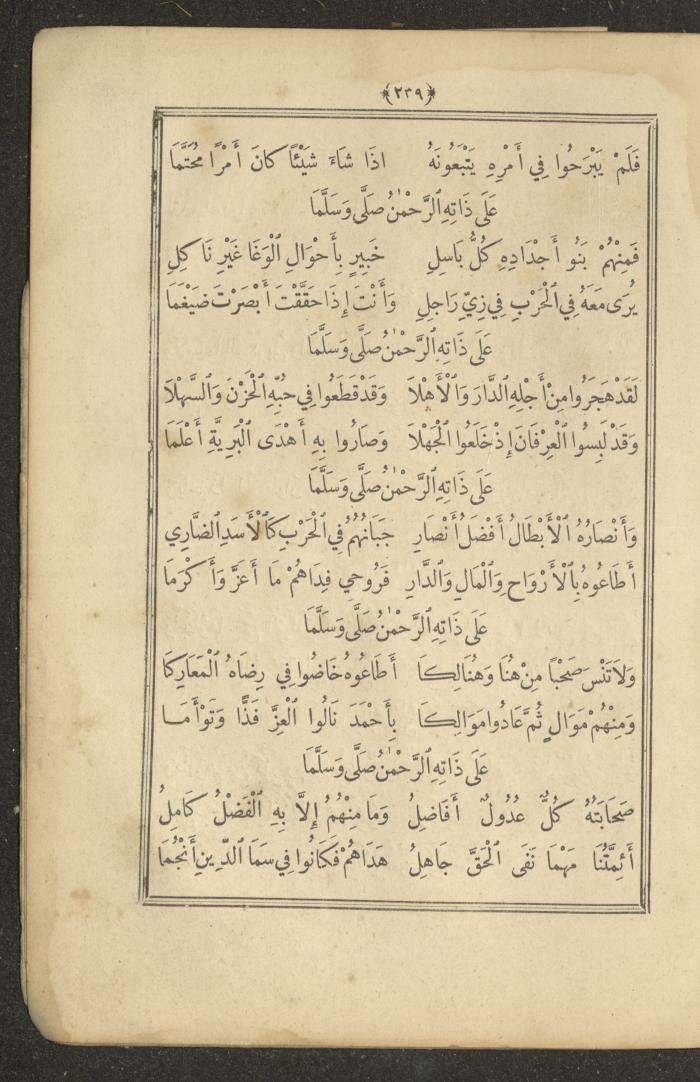 ﴿٢٣٩﴾
فَلَمْ يَبْرَحُوا فِي أَمْرِهِ يَتْبَعُونَهُ اذَا شَاءَ شَيْئًا كانَ أَمْرًا مُحَتَّمَا
عَلَى ذَاتِهِ ٱلرَّحْمٰنُ صَلَّى وَسَلَّمَا
فَمِنْهُمْ بَنُو أَجْدَادِهِ كُلُّ بَاسِلِ خَبِيرٍ بِأَحْوَالِ ٱلْوَغَا غَيْرِ نَاكِلِ
يُرَى مَعَهُ فِي ٱلْحَرْبِ فِي زِيِّ رَاجِلِ وَأَنْتَ إِذَا حَقَّقْتَ أَبْصَرْتَ ضَيْغَمَا
عَلَى ذَاتِهِ ٱلرَّحْمٰنُ صَلَّى وَسَلَّمَا
لَقَدْ هَجَرُوا مِنْ أَجْلِهِ ٱلدَّارَ وَٱلْأَهْلَا وَقَدْ قَطَعُوا فِي حُبِّهِ ٱلْحَزْنَ وَٱلسَّهْلَا
وَقَدْ لَبِسُوا ٱلْعِرْفَانَ إِذْ خَلَعُوا ٱلْجَهْلَا وَصَارُوا بِهِ أَهْدَى ٱلْبَرِيَّةِ أَعْلَمَا
عَلَى ذَاتِهِ ٱلرَّحْمٰنُ صَلَّى وَسَلَّمَا
وَأَنْصَارُهُ ٱلْأَبْطَالُ أَفْضَلُ أَنْصَارِ جَبَانُهُمُ فِي ٱلْحَرْبِ كَٱلْأَسَدِ ٱلضَّارِي
أَطَاعُوهُ بِٱلْأَرْوَاحِ وَٱلْمَالِ وَٱلدَّارِ فَرُوحِي فِدَاهُمْ مَا أَعَزَّ وَأَكْرَمَا
عَلَى ذَاتِهِ ٱلرَّحْمٰنُ صَلَّى وَسَلَّمَا
وَلَا تَنْسَ صَحْبًا مِنْ هُنَا وَهُنَالِكَا أَطَاعُوهُ خَاضُوا فِي رِضَاهُ ٱلْمَعَارِكَا
وَمِنْهُمْ مَوَالٍ ثُمَّ عَادُوا مَوَالِكَا بِأَحْمَدَ نَالُوا ٱلْعِزَّ فَذًّا وَتَوْأَمَا
عَلَى ذَاتِهِ ٱلرَّحْمٰنُ صَلَّى وَسَلَّمَا
صَحَابَتُهُ كُلٌّ عُدُولٌ أَفَاضِلُ وَمَا مِنْهُمُ إِلَّا بِهِ ٱلْفَضْلُ كَامِلُ
أَئِمَّتُنَا مَهْمَا نَفَى ٱلْحَقَّ جَاهِلُ هَدَاهُمْ فَكَانُوا فِي سَمَا ٱلدِّينِ أَنْجُمَا